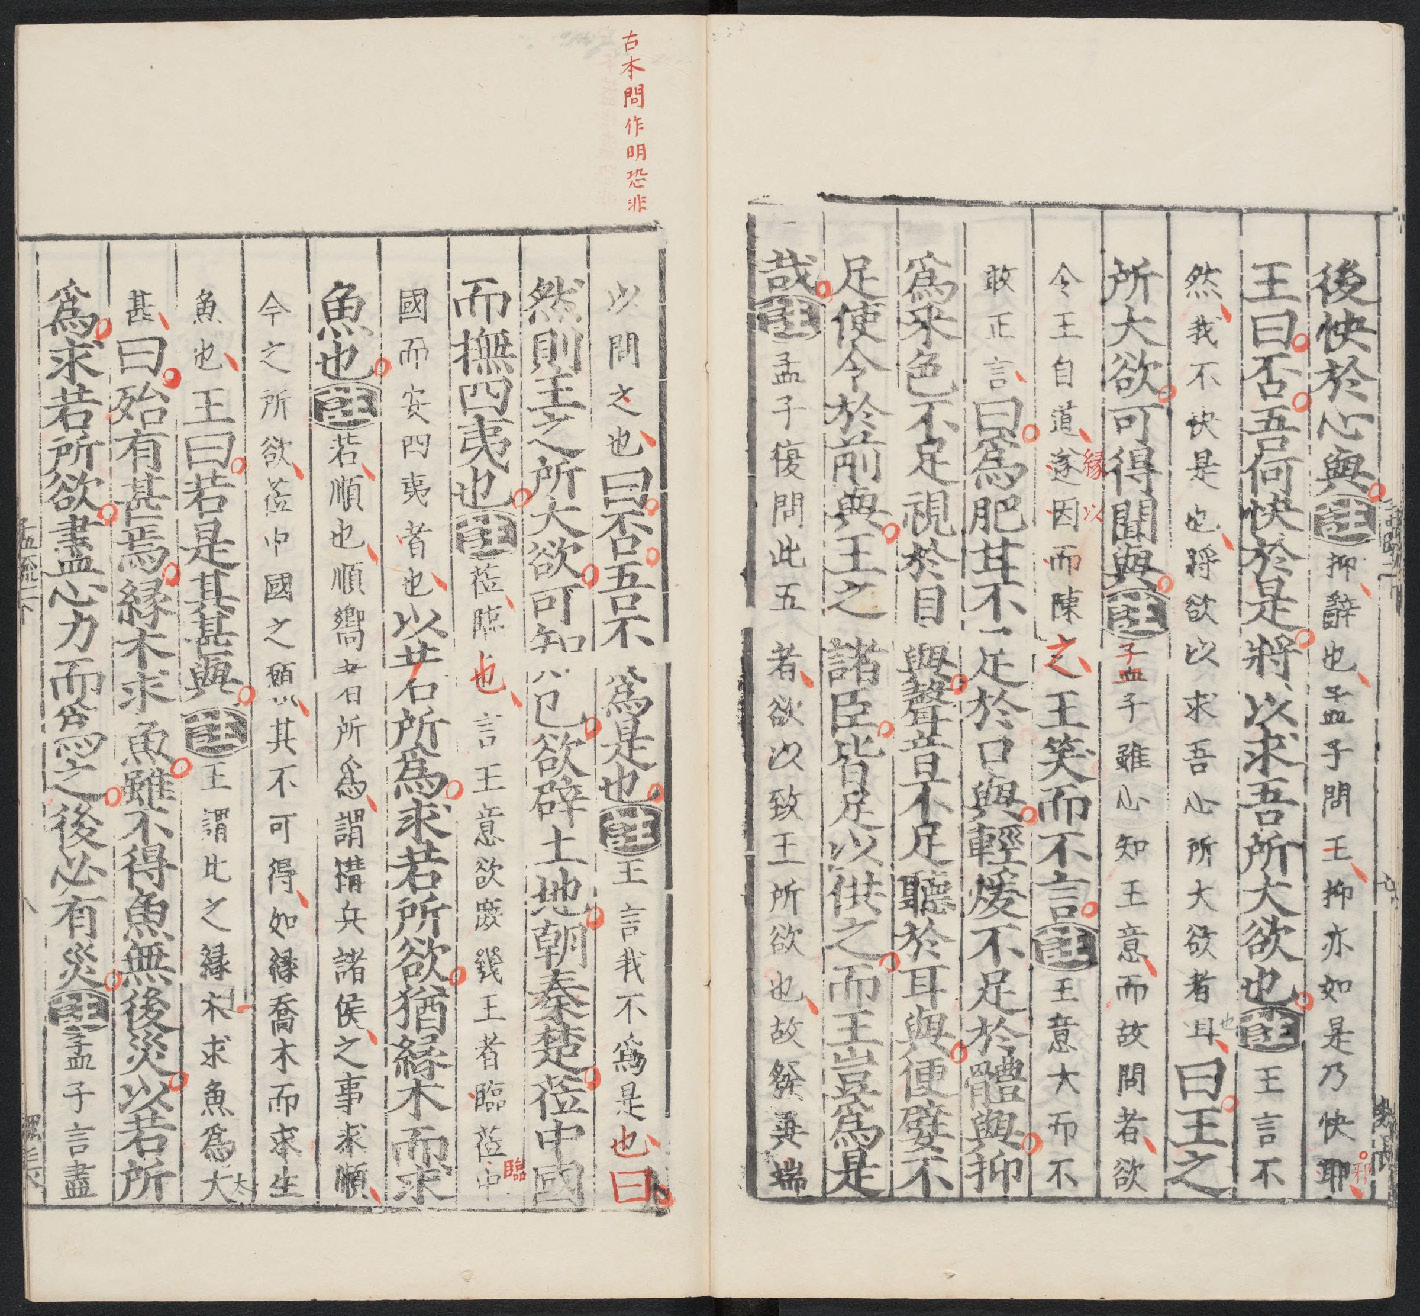 後快於心與註抑辭也孟子問王抑亦如是乃快耶
王曰否吾何快於是將以求吾所大欲也註王言不
然我不快是也將欲以求吾心所大欲者耳曰王之
所大欲可得聞與註孟子雖心知王意而故問者欲
令王自道遂因而陳之王笑而不言註王意大而不
敢正言曰爲肥甘不足於口與輕煖不足於體與抑
爲采色不足視於目與聲音不足聽於耳與便嬖不
足使令於前與王之諸臣皆足以供之而王豈爲是
哉註孟子復問此五者欲以致王所欲也故發異端
古本問作明恐非
以問之也曰否吾不爲是也註王言我不爲是也曰
然則王之所大欲可知已欲辟土地朝秦楚莅中國
而撫四夷也註莅臨也言王意欲庶幾王者臨莅中
國而安四夷者也以若所爲求若所欲猶緣木而求
魚也註若順也順嚮者所爲謂搆兵諸侯之事求順
今之所欲莅中國之願以其不可得如緣喬木而求生
魚也王曰若是其甚與註王謂比之緣木求魚爲大
甚曰殆有甚焉緣木求魚雖不得魚無後災以若所
爲求若所欲盡心力而爲之後必有災註孟子言盡
緣以
臨